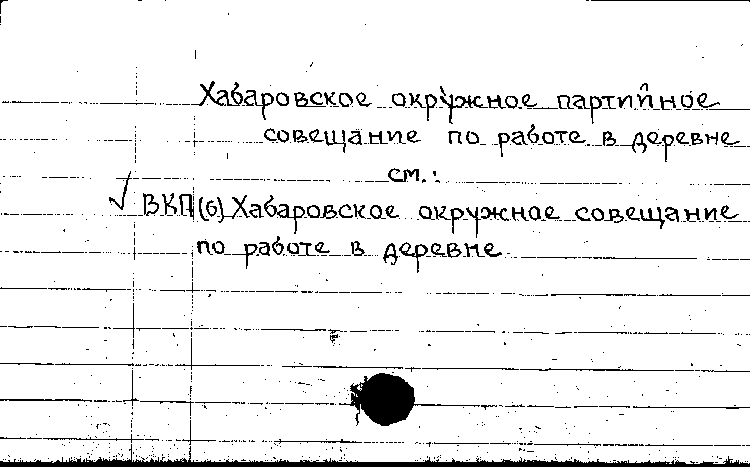 Хабаровское окружное партийное
совещание по работе в деревне
см.:
√ ВКП(б) Хабаровское окружное совещание
по работе в деревне